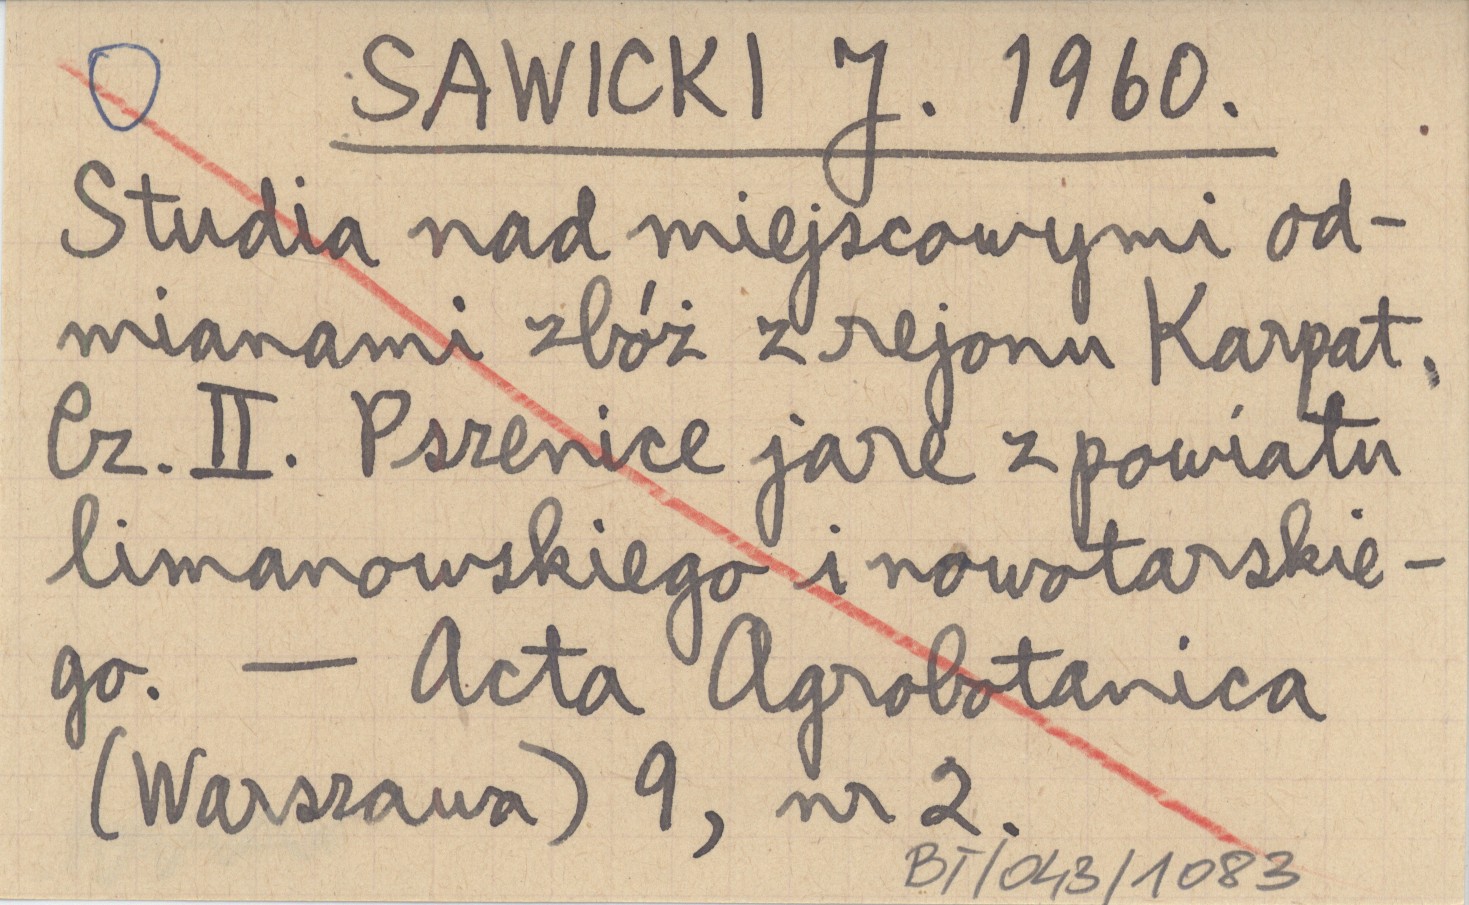 SAWICKI J. 1960.
Studia nad miejscowymi od-
mianami zbóż z rejonu Karpat.
Cz. II. Pszenice jare z powiatu
limanowskiego i nowotarskie-
go. — Acta Agrobotanica
(Warszawa) 9, nr 2.
BT/043/1083